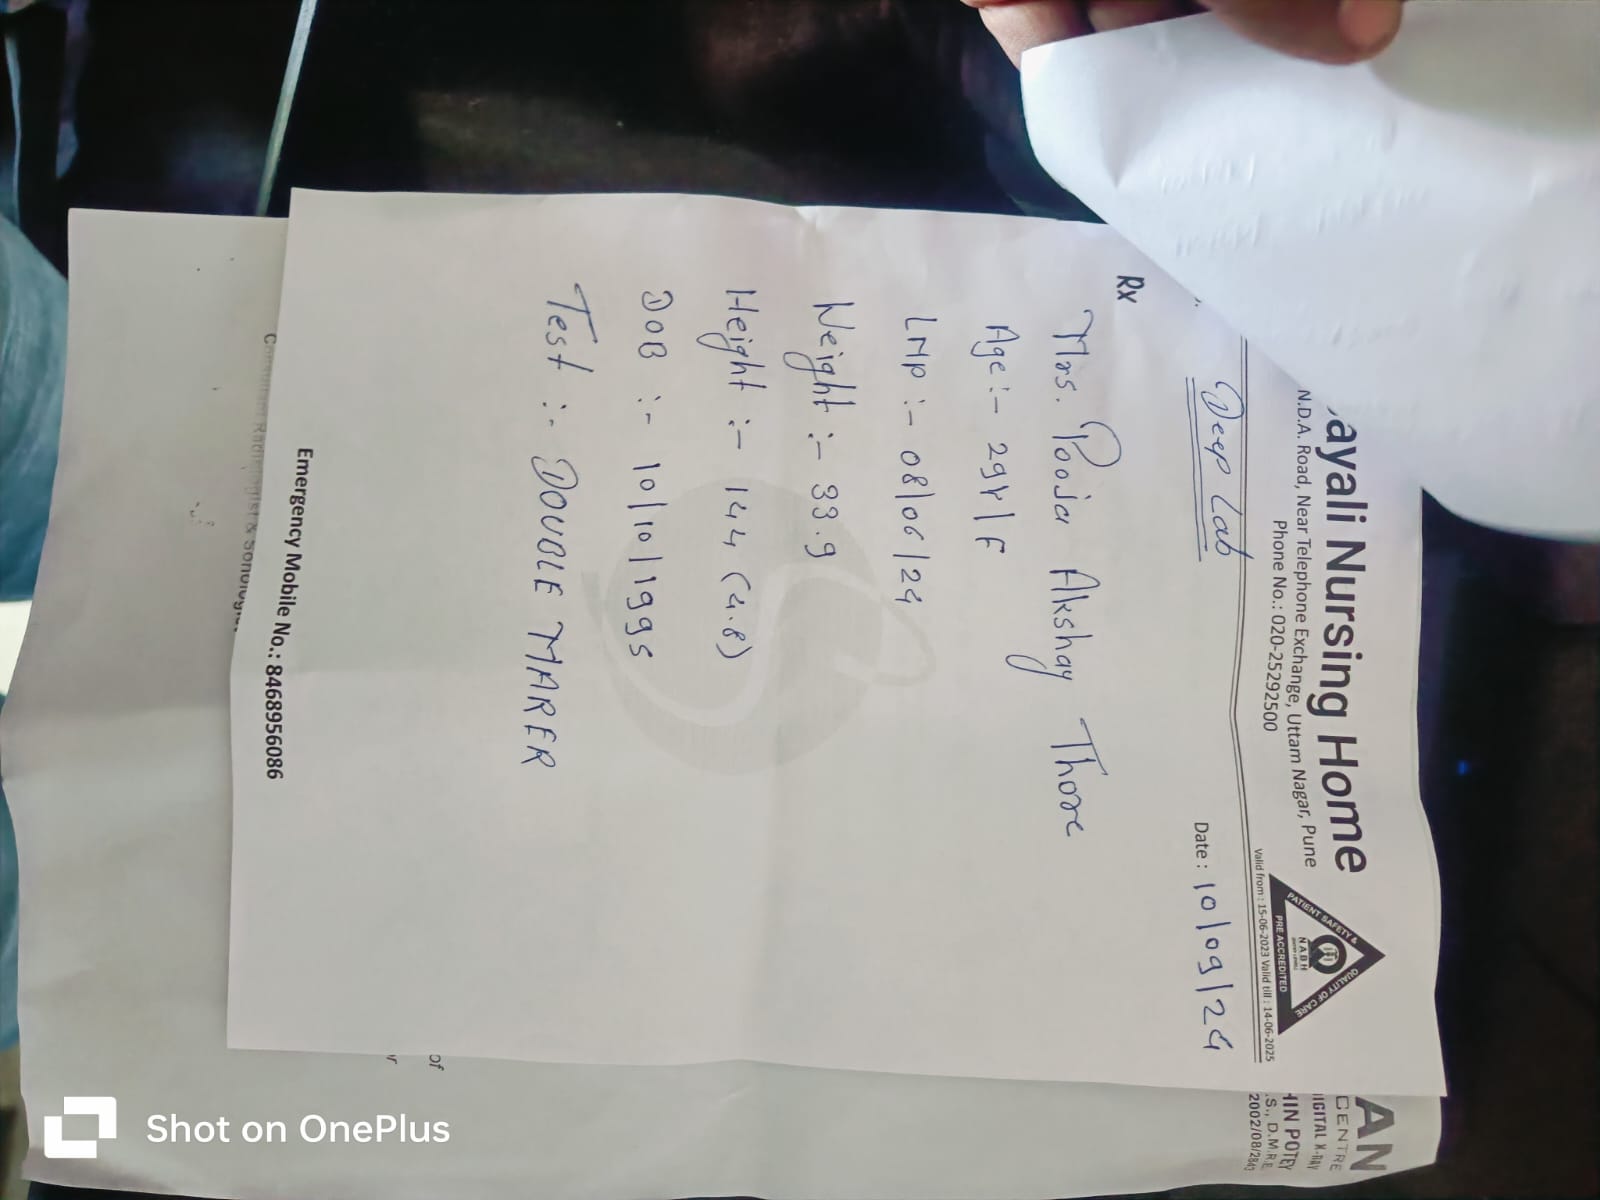 ayali Nursing Home
N.D.A. Road, Near Telephone Exchange, Uttam Nagar, Pune
Phone No.: 020-25292500
PATIENT SAFETY & QUALITY OF CARE
NABH
PRE ACCREDITED
Valid from : 15-06-2023 Valid till : 14-06-2025
Deep Lab
Date : 10/09/24
Rx
Mrs. Pooja Akshay Thore
Age :- 29Y/F
LMP :- 08/06/24
Weight :- 33.9
Height :- 144 (4.8)
DOB :- 10/10/1995
Test :- DOUBLE MARER
Emergency Mobile No.: 8468956086
AN
CENTRE
IGITAL X-RAY
HIN POTEY
.S., D.M.R.E.
2002/08/2843
of
r
Consultant Radiologist & Sonologist
Shot on OnePlus